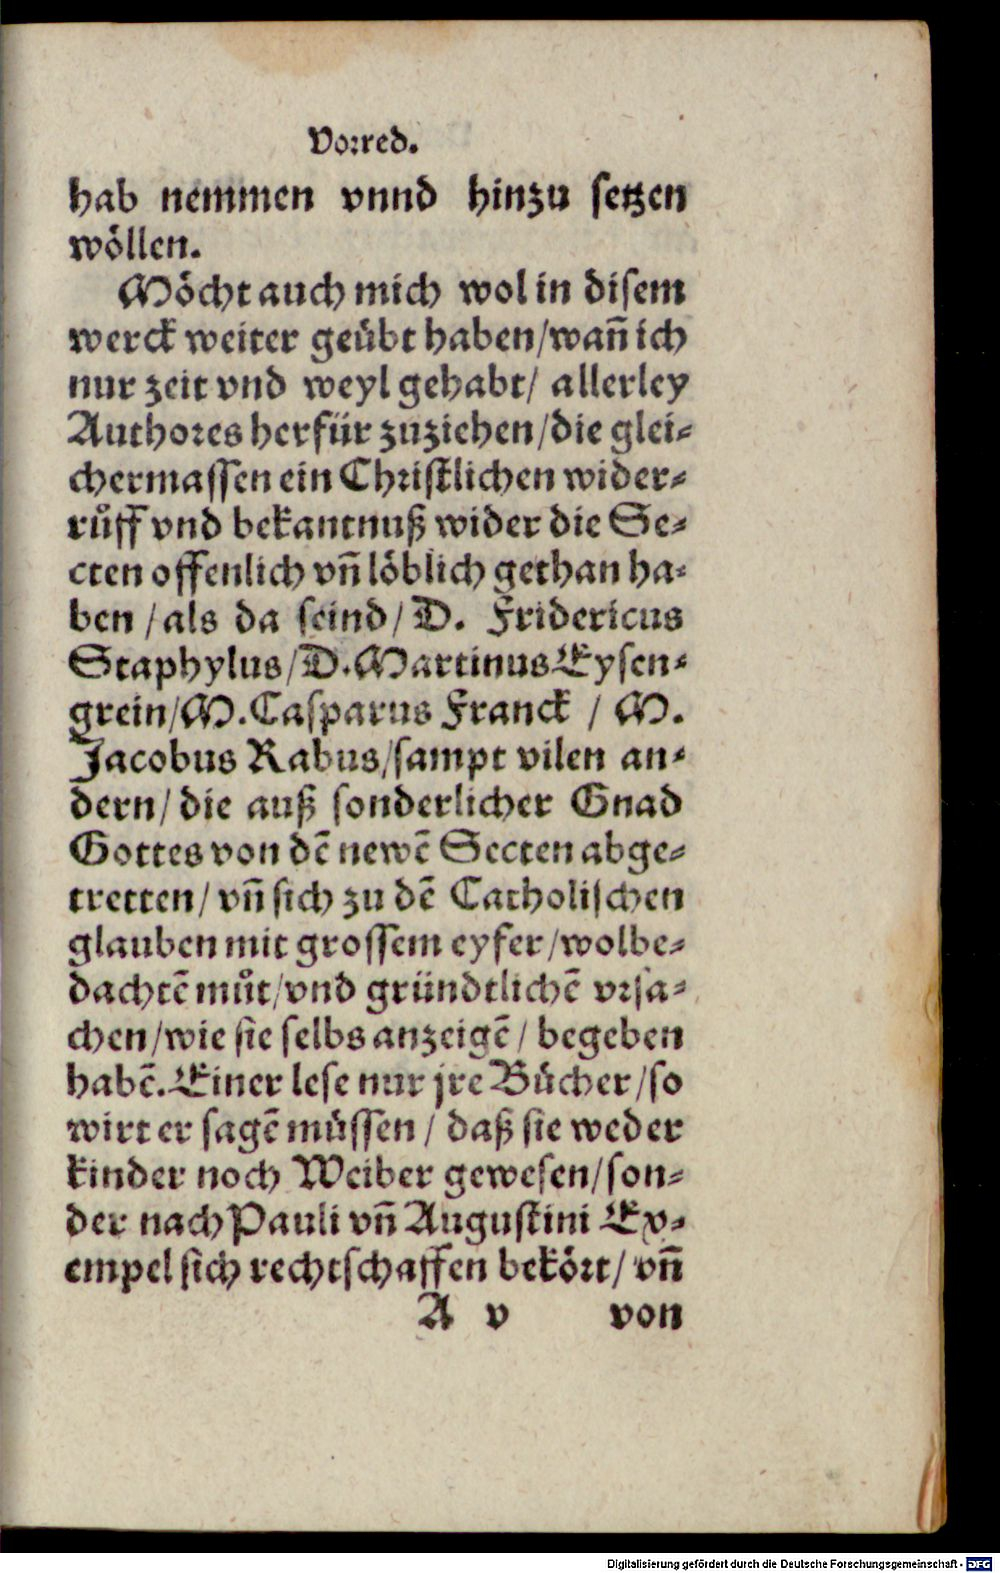 Vorred.
hab nemmen vnnd hinzu setzen
wöllen.
Möcht auch mich wol in disem
werck weiter geübt haben/wañ ich
nur zeit vnd weyl gehabt/ allerley
Authores herfür zuziehen/die glei⸗
chermassen ein Christlichen wider⸗
růff vnd bekantnuß wider die Se⸗
cten offenlich vñ löblich gethan ha⸗
ben /als da seind/ D. Fridericus
Staphylus/D. Martinus Eysen⸗
grein/M. Casparus Franck / M.
Jacobus Rabus/sampt vilen an⸗
dern/ die auß sonderlicher Gnad
Gottes von dē newē Secten abge⸗
tretten/ vñ sich zu dē Catholischen
glauben mit grossem eyfer/wolbe⸗
dachtē můt/vnd gründtlichē vrsa⸗
chen/wie sie selbs anzeigē/ begeben
habē. Einer lese nur jre Bücher/so
wirt er sagē müssen/ daß sie weder
kinder noch Weiber gewesen/son⸗
der nach Pauli vñ Augustini Ex⸗
empel sich rechtschaffen bekört/ vñ
A v von
Digitalisierung gefördert durch die Deutsche Forschungsgemeinschaft - DFG